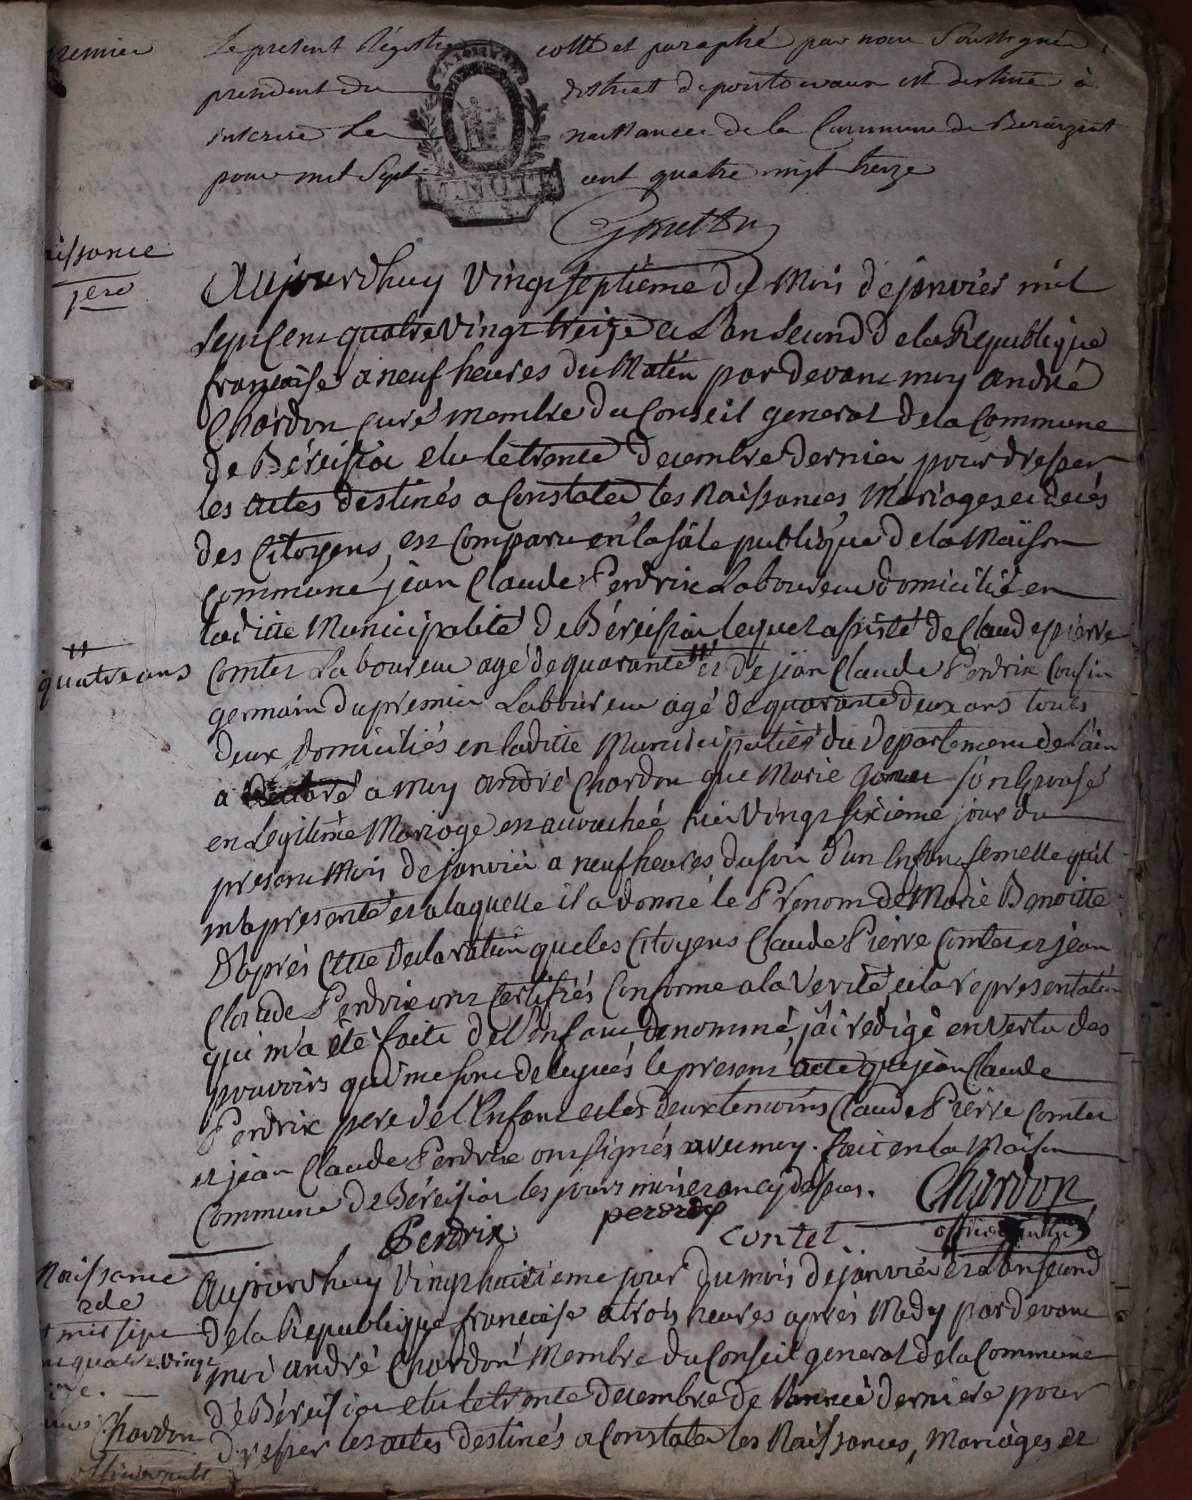 premier
Le present Régistre cotté et paraphé par nous Soussigné,
president du district de pontdevaux est destiné à
inscrire les naissances de la Commune de
pour mil Sept cent quatre vingt treize
MINUTE
aissance
1ere
Aujourdhuy vingt septième du Mois de janvier mil
sept Cent quatre Vingt treize et L'an second de la Republique
françoise a neuf heures du Matin par devant moy andré
Chardon curé membre du Conseil general de la Commune
de Béreisia elu le trente decembre dernier pour dresser
les actes destinés a Constater les Naissances, Mariages et decés
des Citoyens, est Comparu en la sale publique de la Maison
Commune jean Claude Perdrix Laboureur domicilié en
laditte Municipalité de Béreisia lequel assisté de Claude pierre
quatre ans
Comtet Laboureur agé de quarante # et de jean Claude Perdrix Cousin
germain du premier Laboureur agé de quarante deux ans touts
deux domiciliés en laditte Municipalité du Departement de l'ain
a declaré a moy andré Chardon que Marie son Epouse
en Legitime Mariage est accouchée hier Vingt sixieme jour du
present Mois de janvier a neuf heures du soir d'un Enfant femelle qu'il
m'a presenté et a laquelle il a donné le Prénom de Marie Benoitte
D'aprés Cette Declaration que les Citoyens Claude Pierre Comtet et jean
Claude Perdrix ont Certifiés Conforme a la Verité et la representation
qui m'a été faite de l'Enfant denommé, j'ai redigé en Vertu des
pouvoirs qui me sont delegués le present acte que jean Claude
Perdrix pere de l'Enfant et les deux temoins Claude Pierre Comtet
et jean Claude Perdrix ont signés avec moy. fait en la Maison
Commune de Béreisia les jours mois et an cy dessus.
Chardon
Perdrix perdrix contet officier public
Naissance
2de
mil sept
quatre Vingt
Chardon
officier public
Aujourdhuy Vingt huitieme jour du mois de janvier et L'an second
de la Republique françoise a trois heures aprés Midy par devant
moi andré Chardon Membre du Conseil general de la Commune
de Béreisia elu le trente decembre de l'année derniere pour
dresser les actes destinés a Constater les Naissances, Mariages et